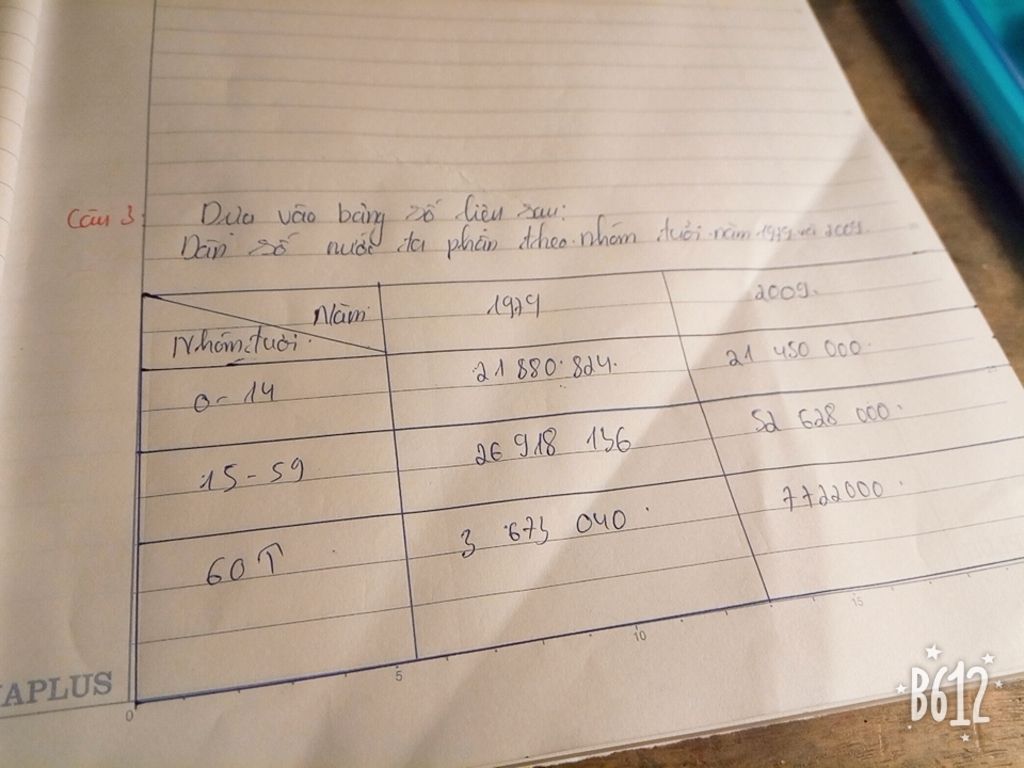 Câu 3:
Dựa vào bảng số liệu sau:
Dân số nước ta phân theo nhóm tuổi năm 1979 và 2009.
Năm 1979 2009.
Nhóm tuổi.
0-14 21 880 824. 21 450 000.
15-59 26 918 136 52 628 000.
60↑ 3 673 040. 7722000.
0 5 10 15
APLUS
B612